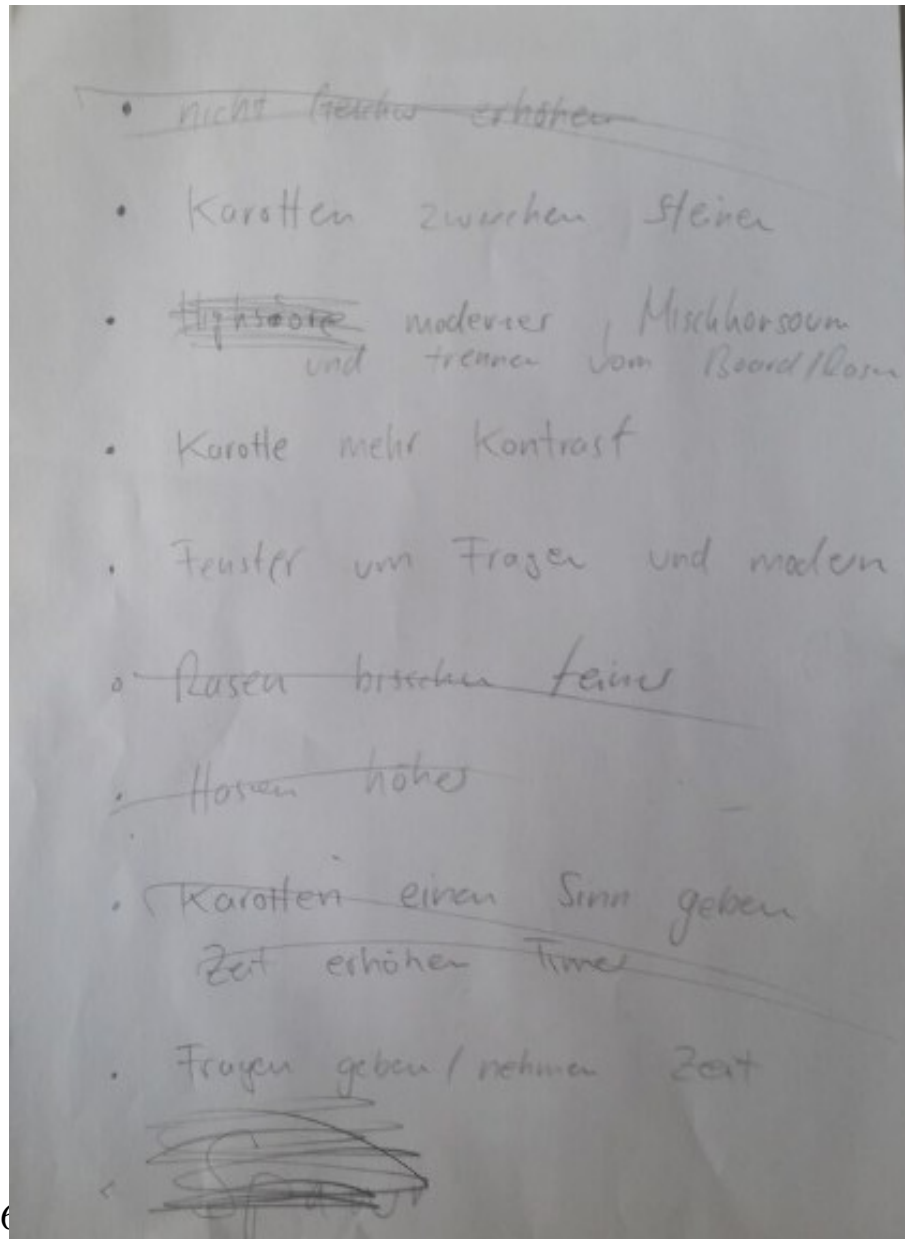 • nicht erhöhen
• Karotten zwischen Steinen
• Highscore moderner,
und trennen vom Board/Rasen
• Karotte mehr Kontrast
• Fenster um Fragen und modern
• Rasen bisschen feiner
• Hasen höher
• Karotten einen Sinn geben
Zeit erhöhen Timer
• Fragen geben/nehmen Zeit